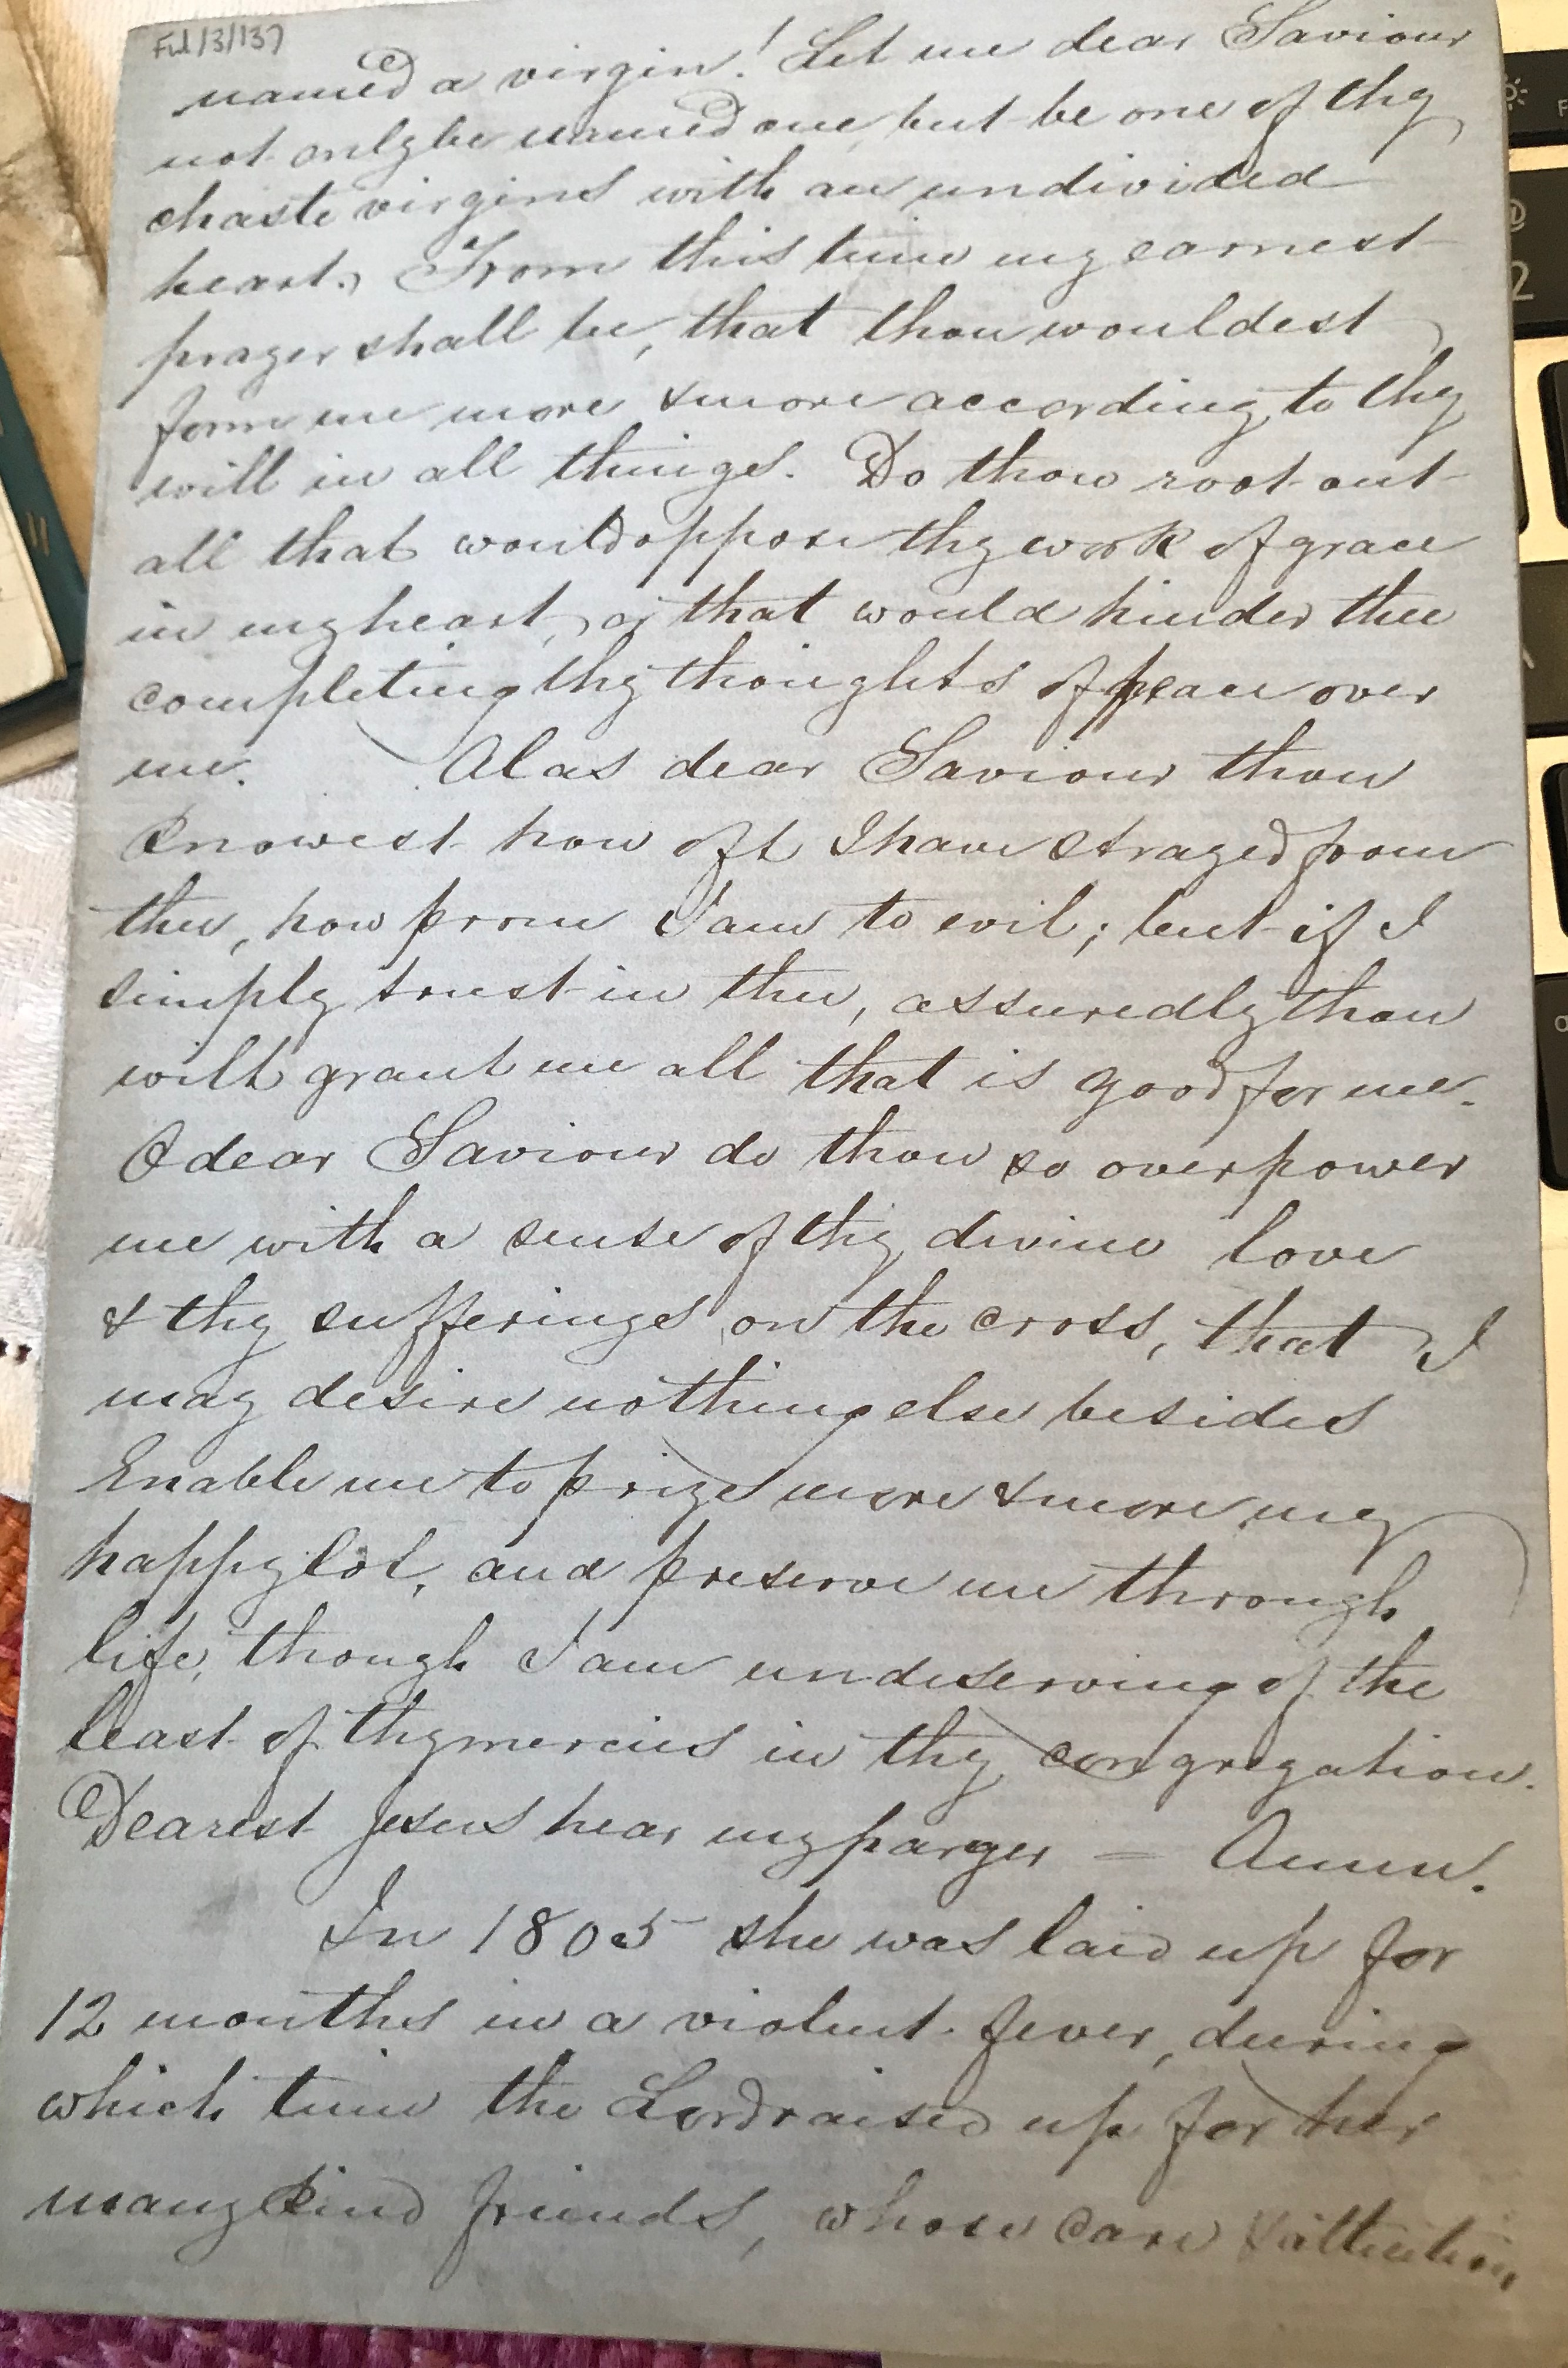 Ful/3/137
named a virgin! Let me dear Saviour
not only be named one, but be one of thy
chaste virgins with an undivided
heart. From this time my earnest
prayer shall be, that thou wouldest
form me more & more according to thy
will in all things. Do thou root out
all that would oppose thy work of grace
in my heart, or that would hinder thee
completing thy thoughts of peace over
me. Alas dear Saviour thou
knowest how oft I have strayed from
thee, how prone I am to evil; but if I
simply trust in thee, assuredly thou
wilt grant me all that is good for me.
O dear Saviour do thou so overpower
me with a sense of thy divine love
& thy sufferings on the cross, that I
may desire nothing else besides
Enable me to prize more & more my
happy lot, and preserve me through
life, though I am undeserving of the
least of thy mercies in thy congregation.
Dearest Jesus hear my paryer = Amen.
In 1805 she was laid up for
12 months in a violent fever, during
which time the Lord raised up for her
many kind friends, whose care & attention